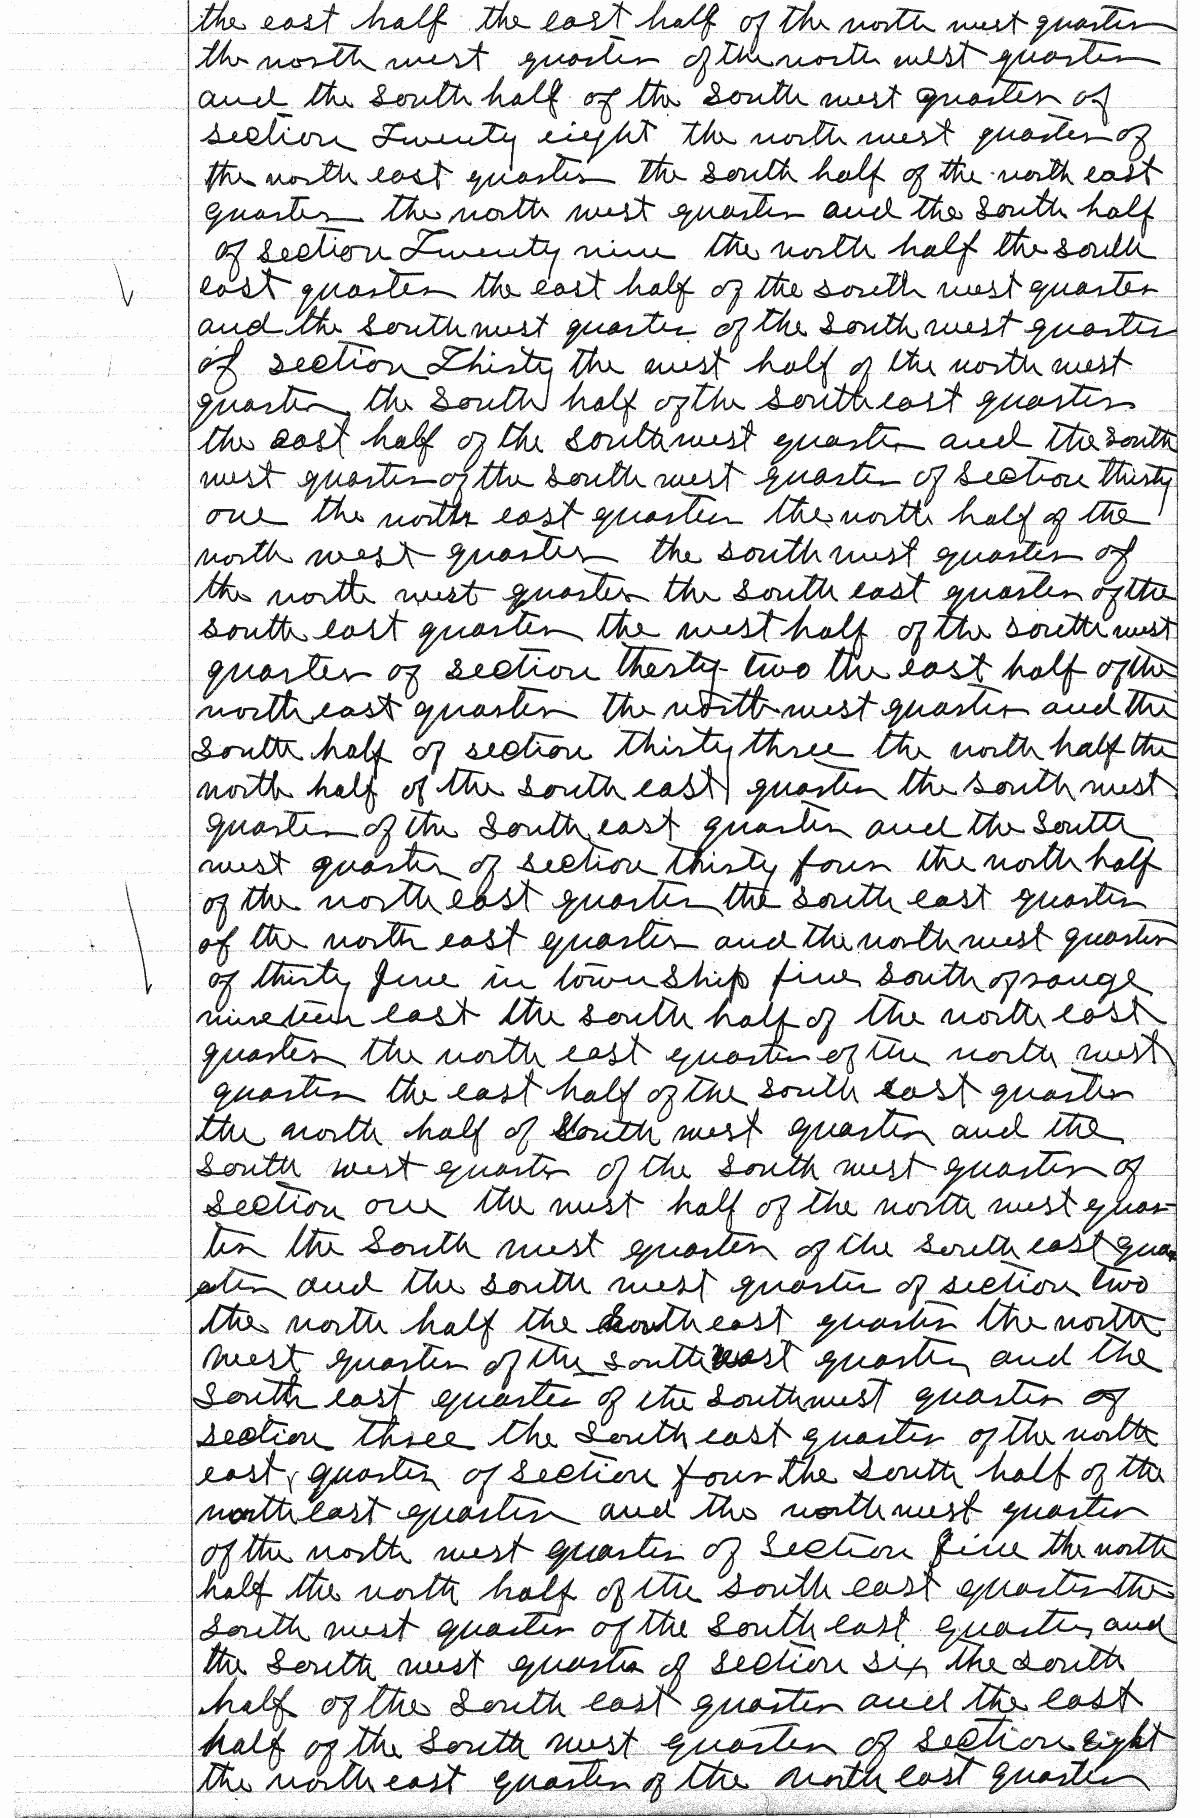 the east half the east half of the north west quarter
the north west quarter of the north west quarter
and the south half of the south west quarter of
section Twenty eight the north west quarter of
the north east quarter the south half of the north east
quarter the north west quarter and the south half
of section Twenty nine the north half the south
east quarter the east half of the south west quarter
and the south west quarter of the south west quarter
of section Thirty the west half of the north west
quarter the south half of the south east quarter
the east half of the south west quarter and the south
west quarter of the south west quarter of section thirty
one the north east quarter the north half of the
north west quarter the south west quarter of
the north west quarter the south east quarter of the
south east quarter the west half of the south west
quarter of section thirty two the east half of the
north east quarter the north west quarter and the
south half of section thirty three the north half the
north half of the south east quarter the south west
quarter of the south east quarter and the south
west quarter of section thirty four the north half
of the north east quarter the south east quarter
of the north east quarter and the north west quarter
of thirty five in township five south of range
nineteen east the south half of the north east
quarter the north east quarter of the north west
quarter the east half of the south east quarter
the north half of south west quarter and the
south west quarter of the south west quarter of
section one the west half of the north west quar-
ter the south west quarter of the south east quar
ter and the south west quarter of section two
the north half the south east quarter the north
west quarter of the south west quarter and the
south east quarter of the south west quarter of
section three the south east quarter of the north
east quarter of section four the south half of the
north east quarter and the north west quarter
of the north west quarter of section five the north
half the north half of the south east quarter the
south west quarter of the south east quarter and
the south west quarter of section six the south
half of the south east quarter and the east
half of the south west quarter of section eight
the north east quarter of the north east quarter